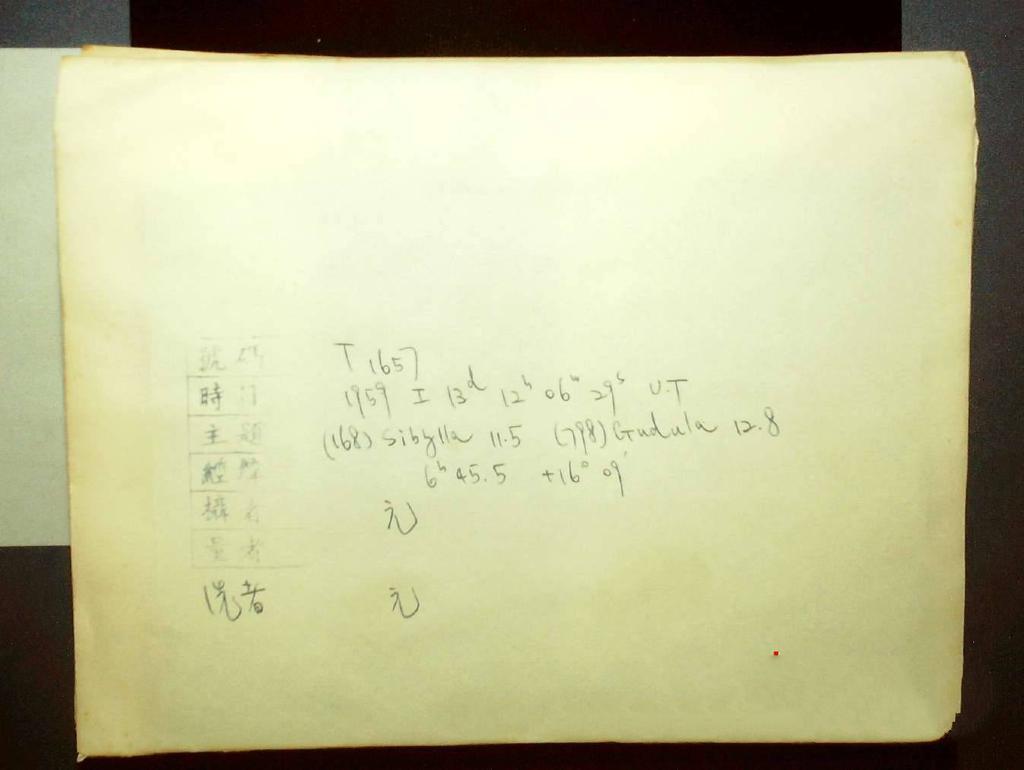 號碼 T 1657
時间 1959 I 13d 12h 06m 29s U.T
主題 (168) Sibylla 11.5 (798) Gudula 12.8
6h 45.5 +16° 09'
攝者 元
量者
洗者 元